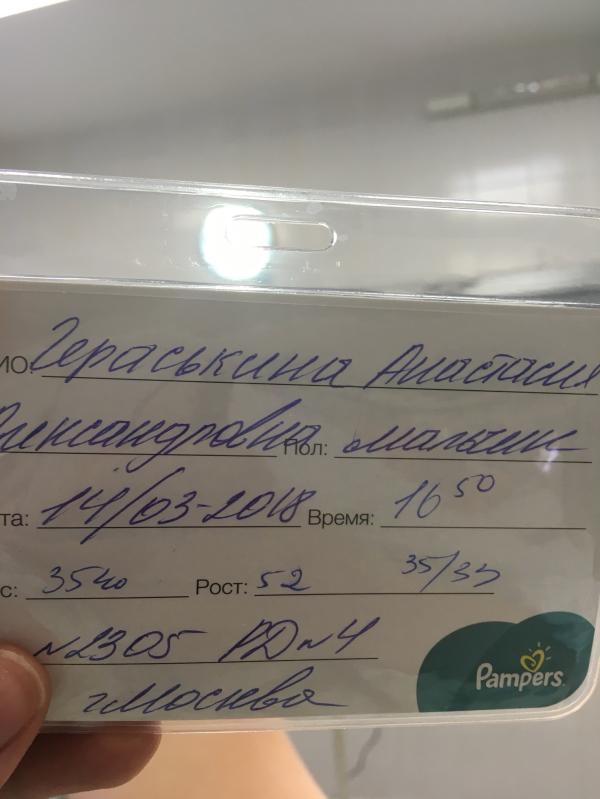 ИО: Гераськина Анастасия
Александровна Пол: мальчик
та: 14/03-2018 Время: 16 50
с: 3540 Рост: 52 35/35
№2305 РД №4
г Москва
Pampers